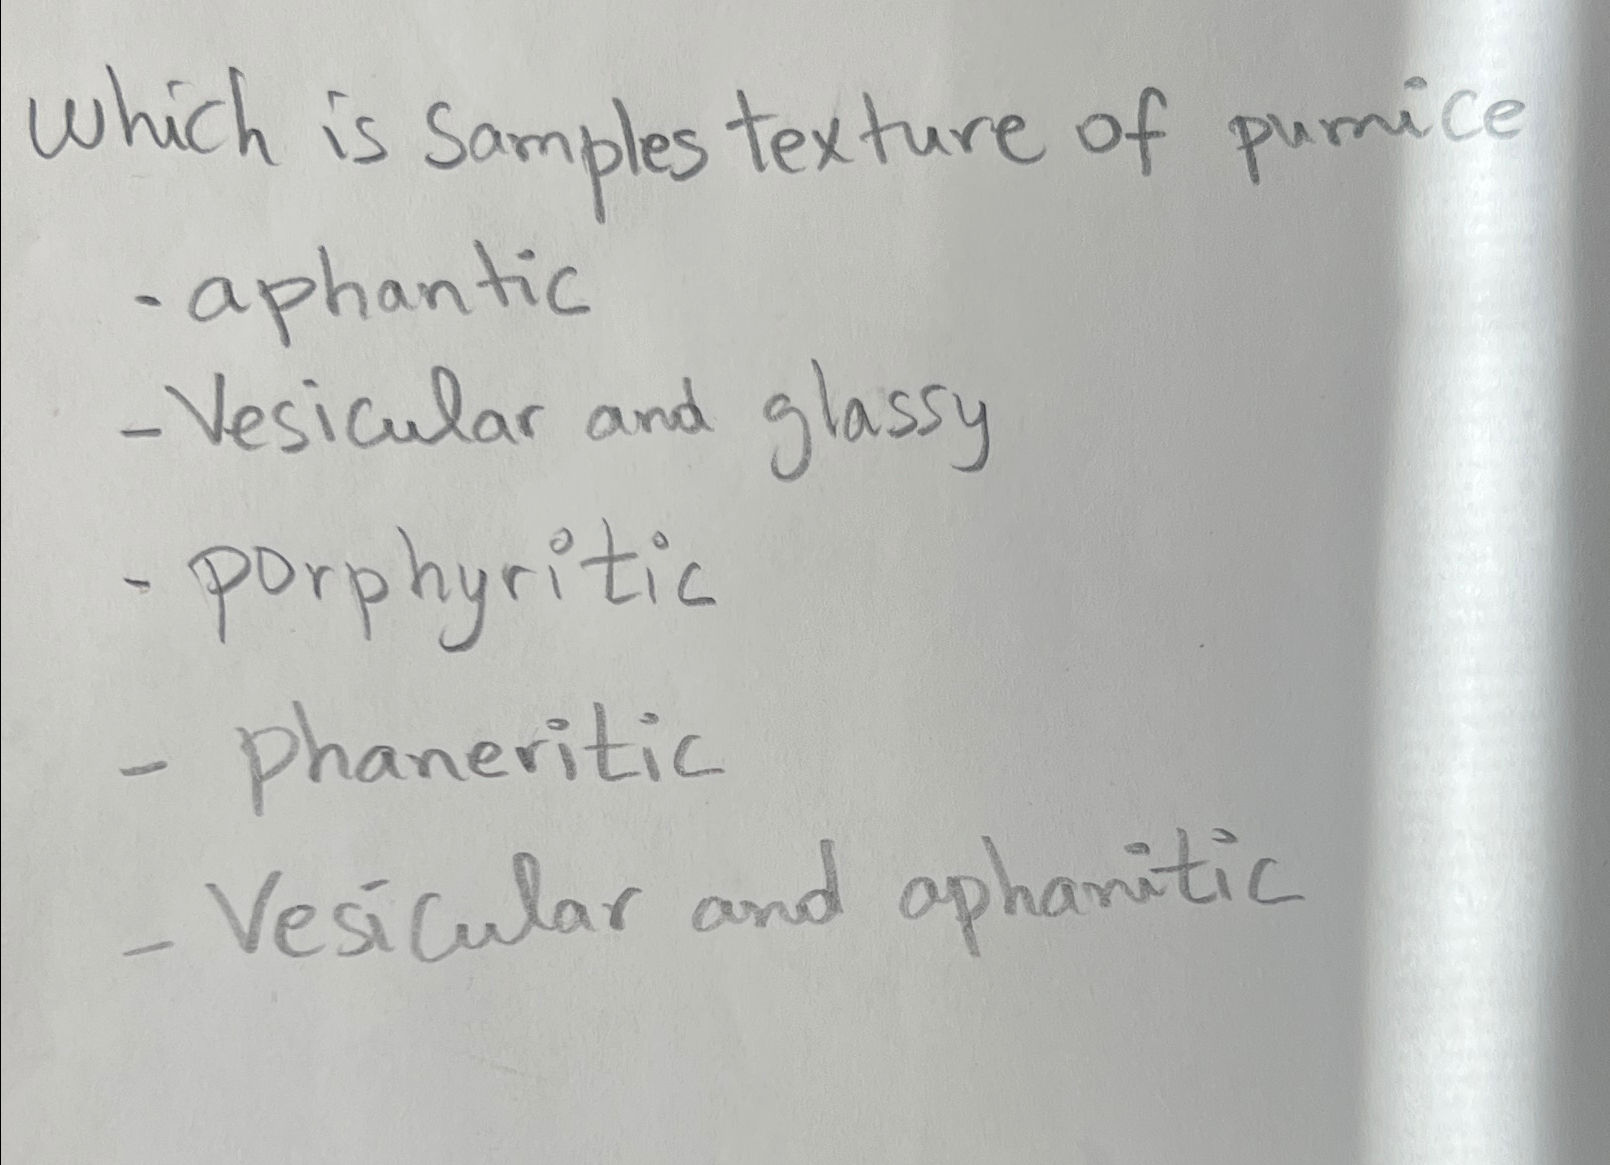 which is Samples texture of pumice
- aphantic
- Vesicular and glassy
- porphyritic
- phaneritic
- Vesicular and aphanitic